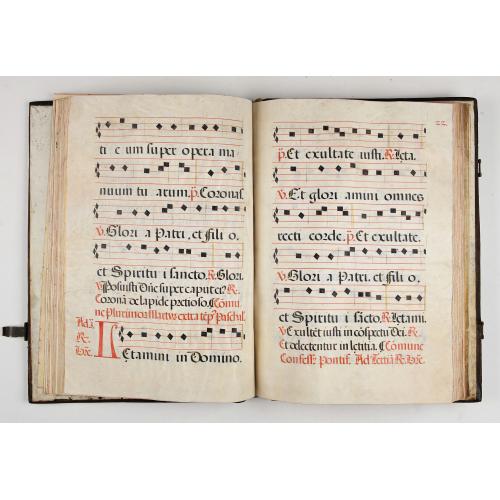 ti e um super opera ma
nuum tu arum. p. Coronas.
V. Glori a Patri, et fili o,
et Spiritu i sancto. R. Glori.
V. Posuisti Dñe super caput ei⁹. R.
Coronã de lapide pretioso. Cõmu
ne Plurimor. Martiru extra tẽp. Paschal.
Ad
R.
LEtamini in Domino.
22.
p. Et exultate iusti. R. Leta.
V. Et glori amini omnes
recti corde. p. Et exultate.
V. Glori a Patri, et fili o,
et Spiritu i sãcto. R. Letami.
V. Exultẽt iusti in cõspectu Dei. R.
Et delectentur in letitia. Cõmune
Confess. Pontif. Ad R.